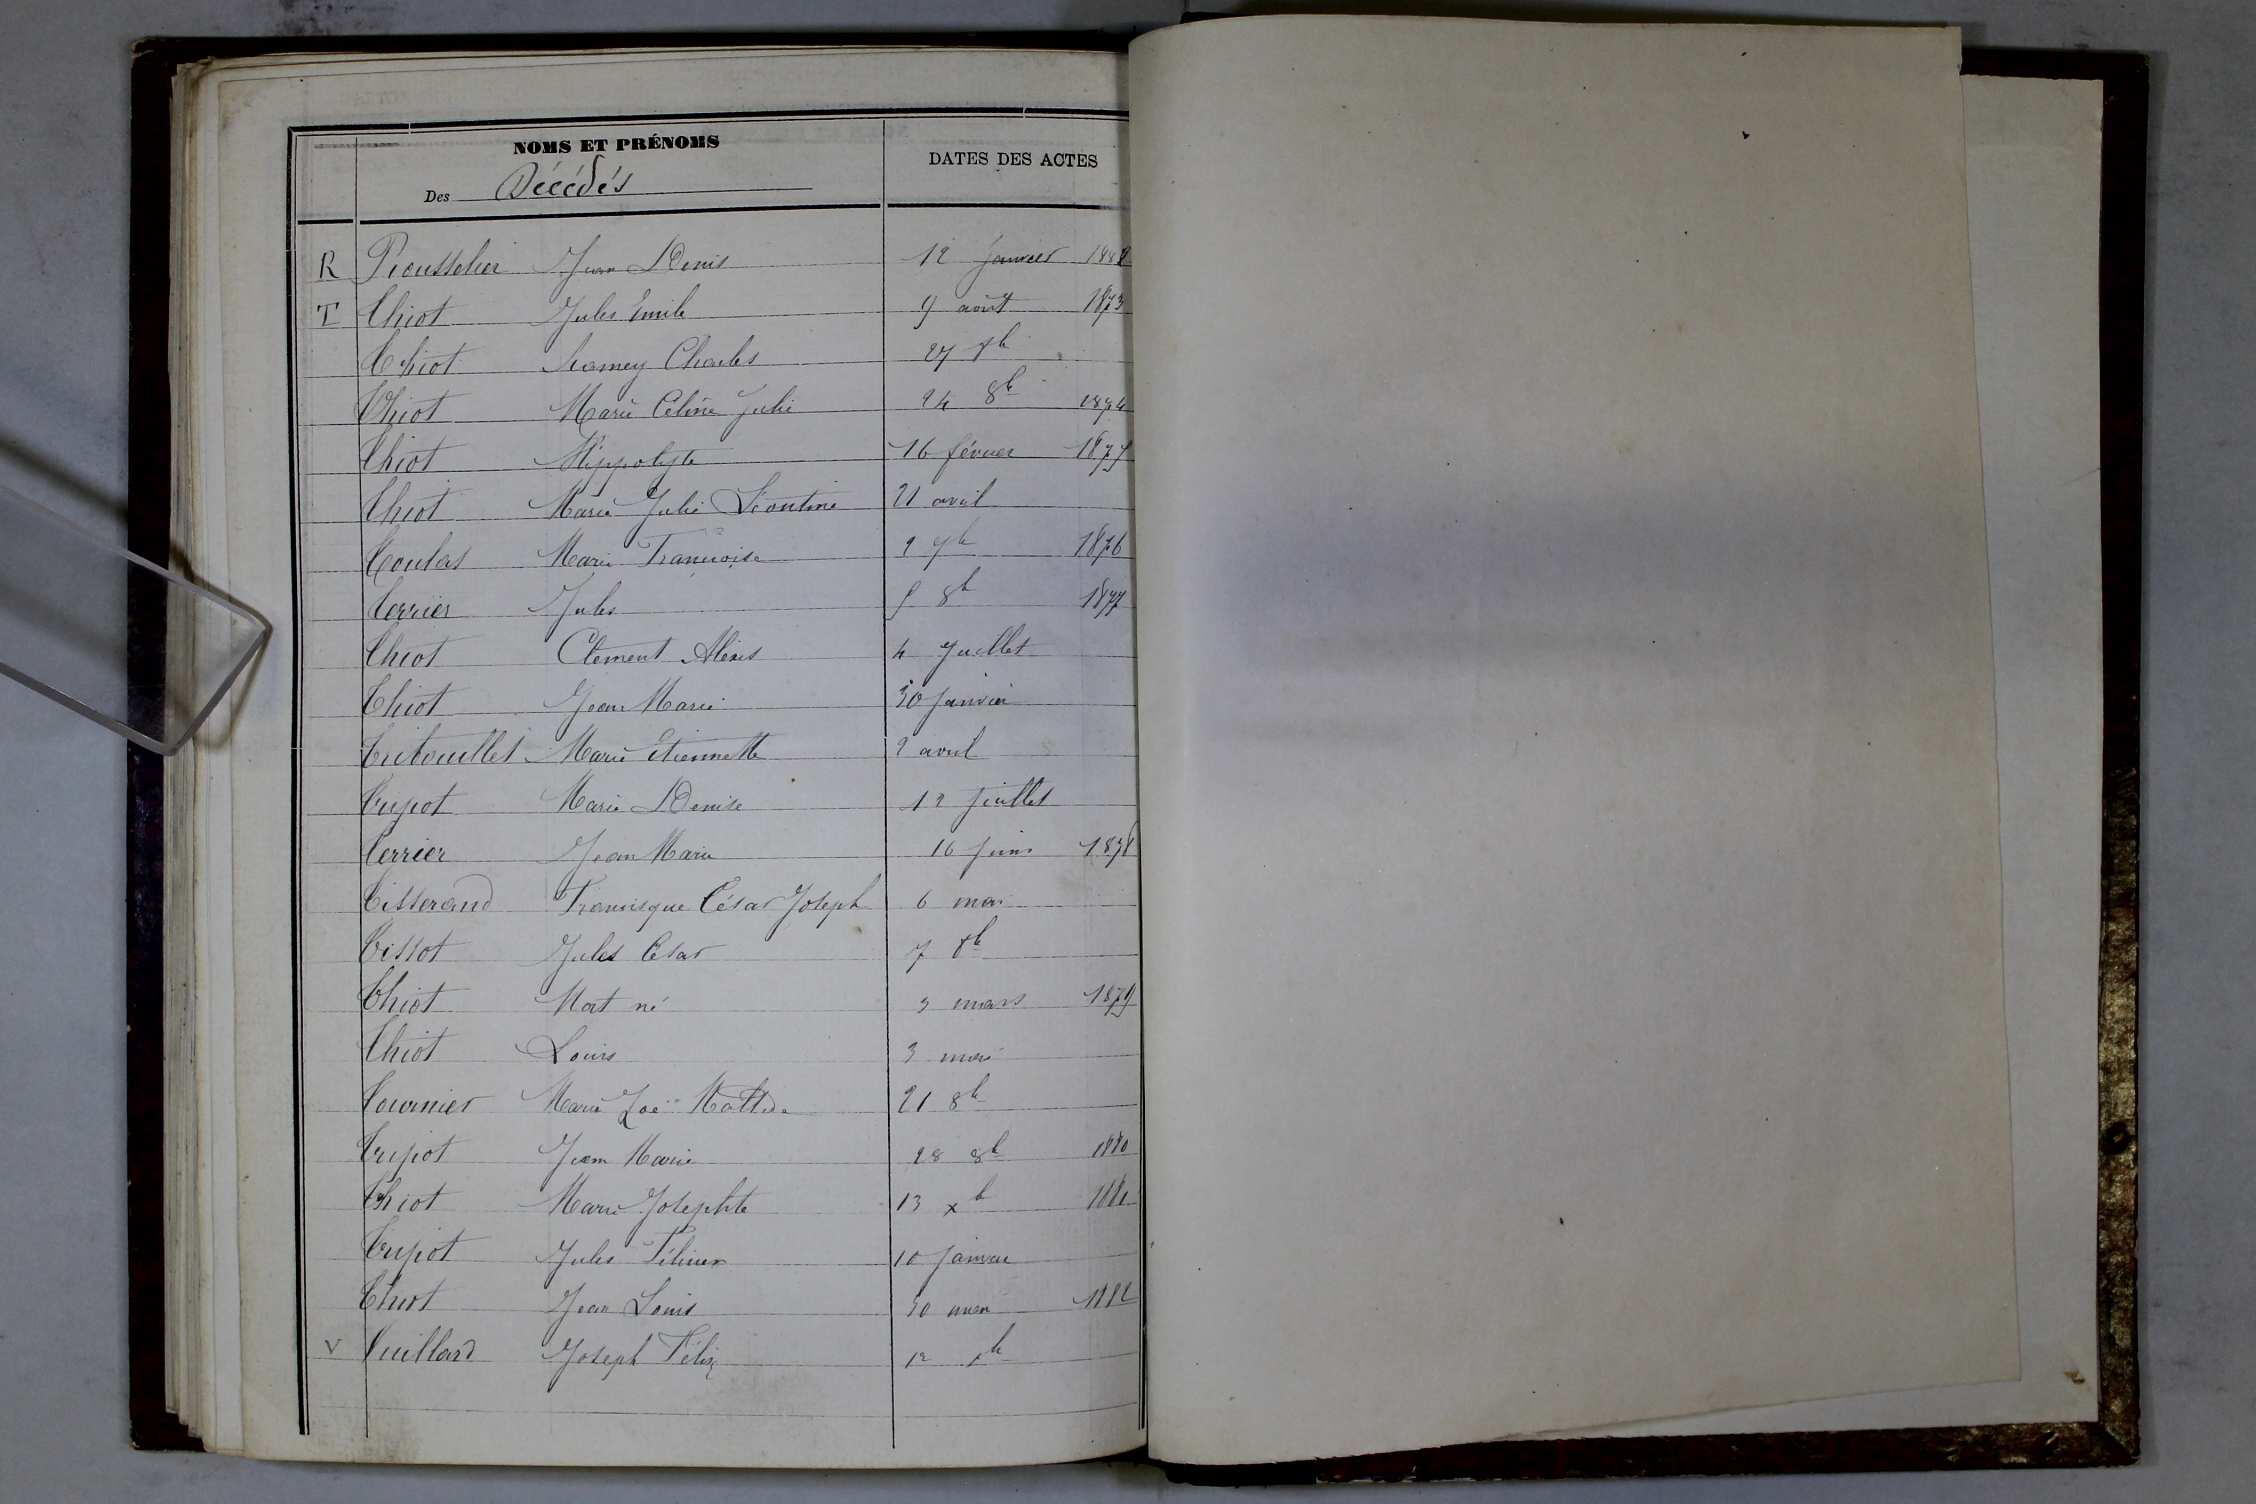 NOMS ET PRÉNOMS
Des Décédés
DATES DES ACTES
R Rousselier Jean Denis 12 janvier 1882
T Thiot Jules Emile 9 août 1873
Thiot Charles 27
Thiot Marie Céline Julie 24 8b 1874
Thiot Hippolyte 16 février 1877
Thiot Marie Julie Léontine 21 avril
Toulas Marie Francoise 2 7b 1876
Terrier Jules 5 8b 1877
Thiot Clément Alexis 4 Juillet
Thiot Jean Marie 30 janvier
Tribouillet Marie Etiennette 2 avril
Tupot Marie Denise 12 juillet
Terrier Jean Marie 16 juin 1878
Tisserand Francisque César Joseph 6 mai
Tissot Jules César 7 8b
Thiot Mort né 3 mars 1879
Thiot Louis 3 mai
Tournier Marie Zoé 21 8b
Tupot Jean Marie 28 8b 1880
Thiot Marie Josephte 13 xb 1881
Tupot Jules 10 janvier
Thiot Jean Louis 30 1882
V Vuillard Joseph Félix 12